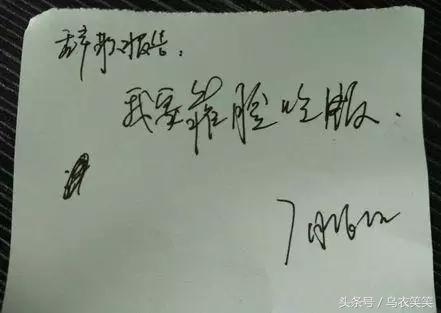 辞职报告:
我要靠脸吃饭.
头条号/乌衣笑笑